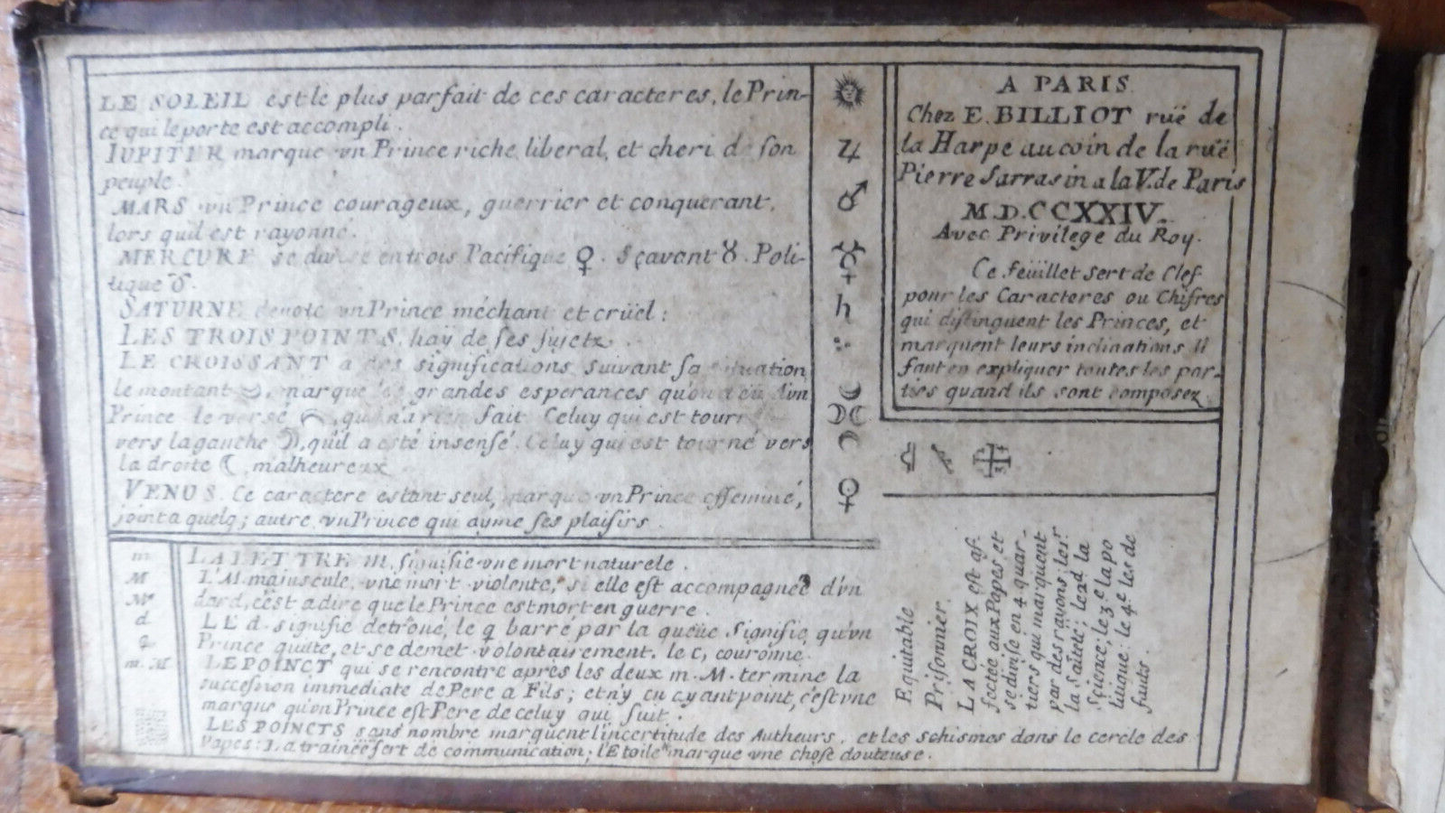 LE SOLEIL est le plus parfait de ces caracteres, le Prin-
ce qui le porte est accompli.
IUPITER marque vn Prince riche liberal, et cheri de son
peuple.
MARS vn Prince courageux, guerrier et conquerant,
lors quil est rayonné.
MERCURE se divise en trois Pacifique ♀. Sçavant ☿. Poli-
tique ♂.
SATURNE denote vn Prince méchant et crüel:
LES TROIS POINTS, hay de ses sujets.
LE CROISSANT a des significations suivant sa situation,
le montant, marque les grandes esperances qu'on a eü d'vn
Prince le versé, qu'il n'a rien fait Celuy qui est tourné
vers la gauche ☽, qu'il a esté insensé. Celuy qui est tourné vers
la droite ☾, malheureux
VENUS. Ce caractere estant seul, marque vn Prince effeminé,
joint a quelq; autre vn Prince qui ayme ses plaisirs.
☉
♃
♂
☿
♄
∴
☽
☽☾
☾
♀
A PARIS
Chez E. BILLIOT ruë de
la Harpe au coin de la ruë
Pierre Sarrasin a la V. de Paris
M.D.CCXXIV.
Avec Privilege du Roy.
Ce feüillet sert de Clef
pour les Caracteres ou Chifres
qui distinguent les Princes, et
marquent leurs inclinations Il
faut en expliquer toutes les par-
ties quand ils sont composez
Equitable
Prisonnier.
LA CROIX est af
fectée aux Papes et
se divise en 4 quar-
tiers qui marquent
par des rayons, le 1.r
la sã\teté; le 2.d la
Sçience; le 3.e la po
litique; le 4.e les de
fauts.
m
M
d
m. M
LA LETTRE m, signifie vne mort naturele.
L'M. majuscule, vne mort violente, si elle est accompagnée d'vn
dard, c'est a dire que le Prince est mort en guerre.
LE d. signifie detrôné, le q barré par la queüe signifie, qu'vn
Prince quite, et se demet volontairement. le c, couronné.
LE POINCT qui se rencontre après les deux m. M. termine la
succession immediate de Pere a Fils; et n'y en ayant point, c'est vne
marque qu'vn Prince est Pere de celuy qui suit.
LES POINCTS sans nombre marquent l'incertitude des Autheurs, et les schismes dans le cercle des
Papes: La trainée sert de communication; l'Etoile * marque vne chose douteuse.